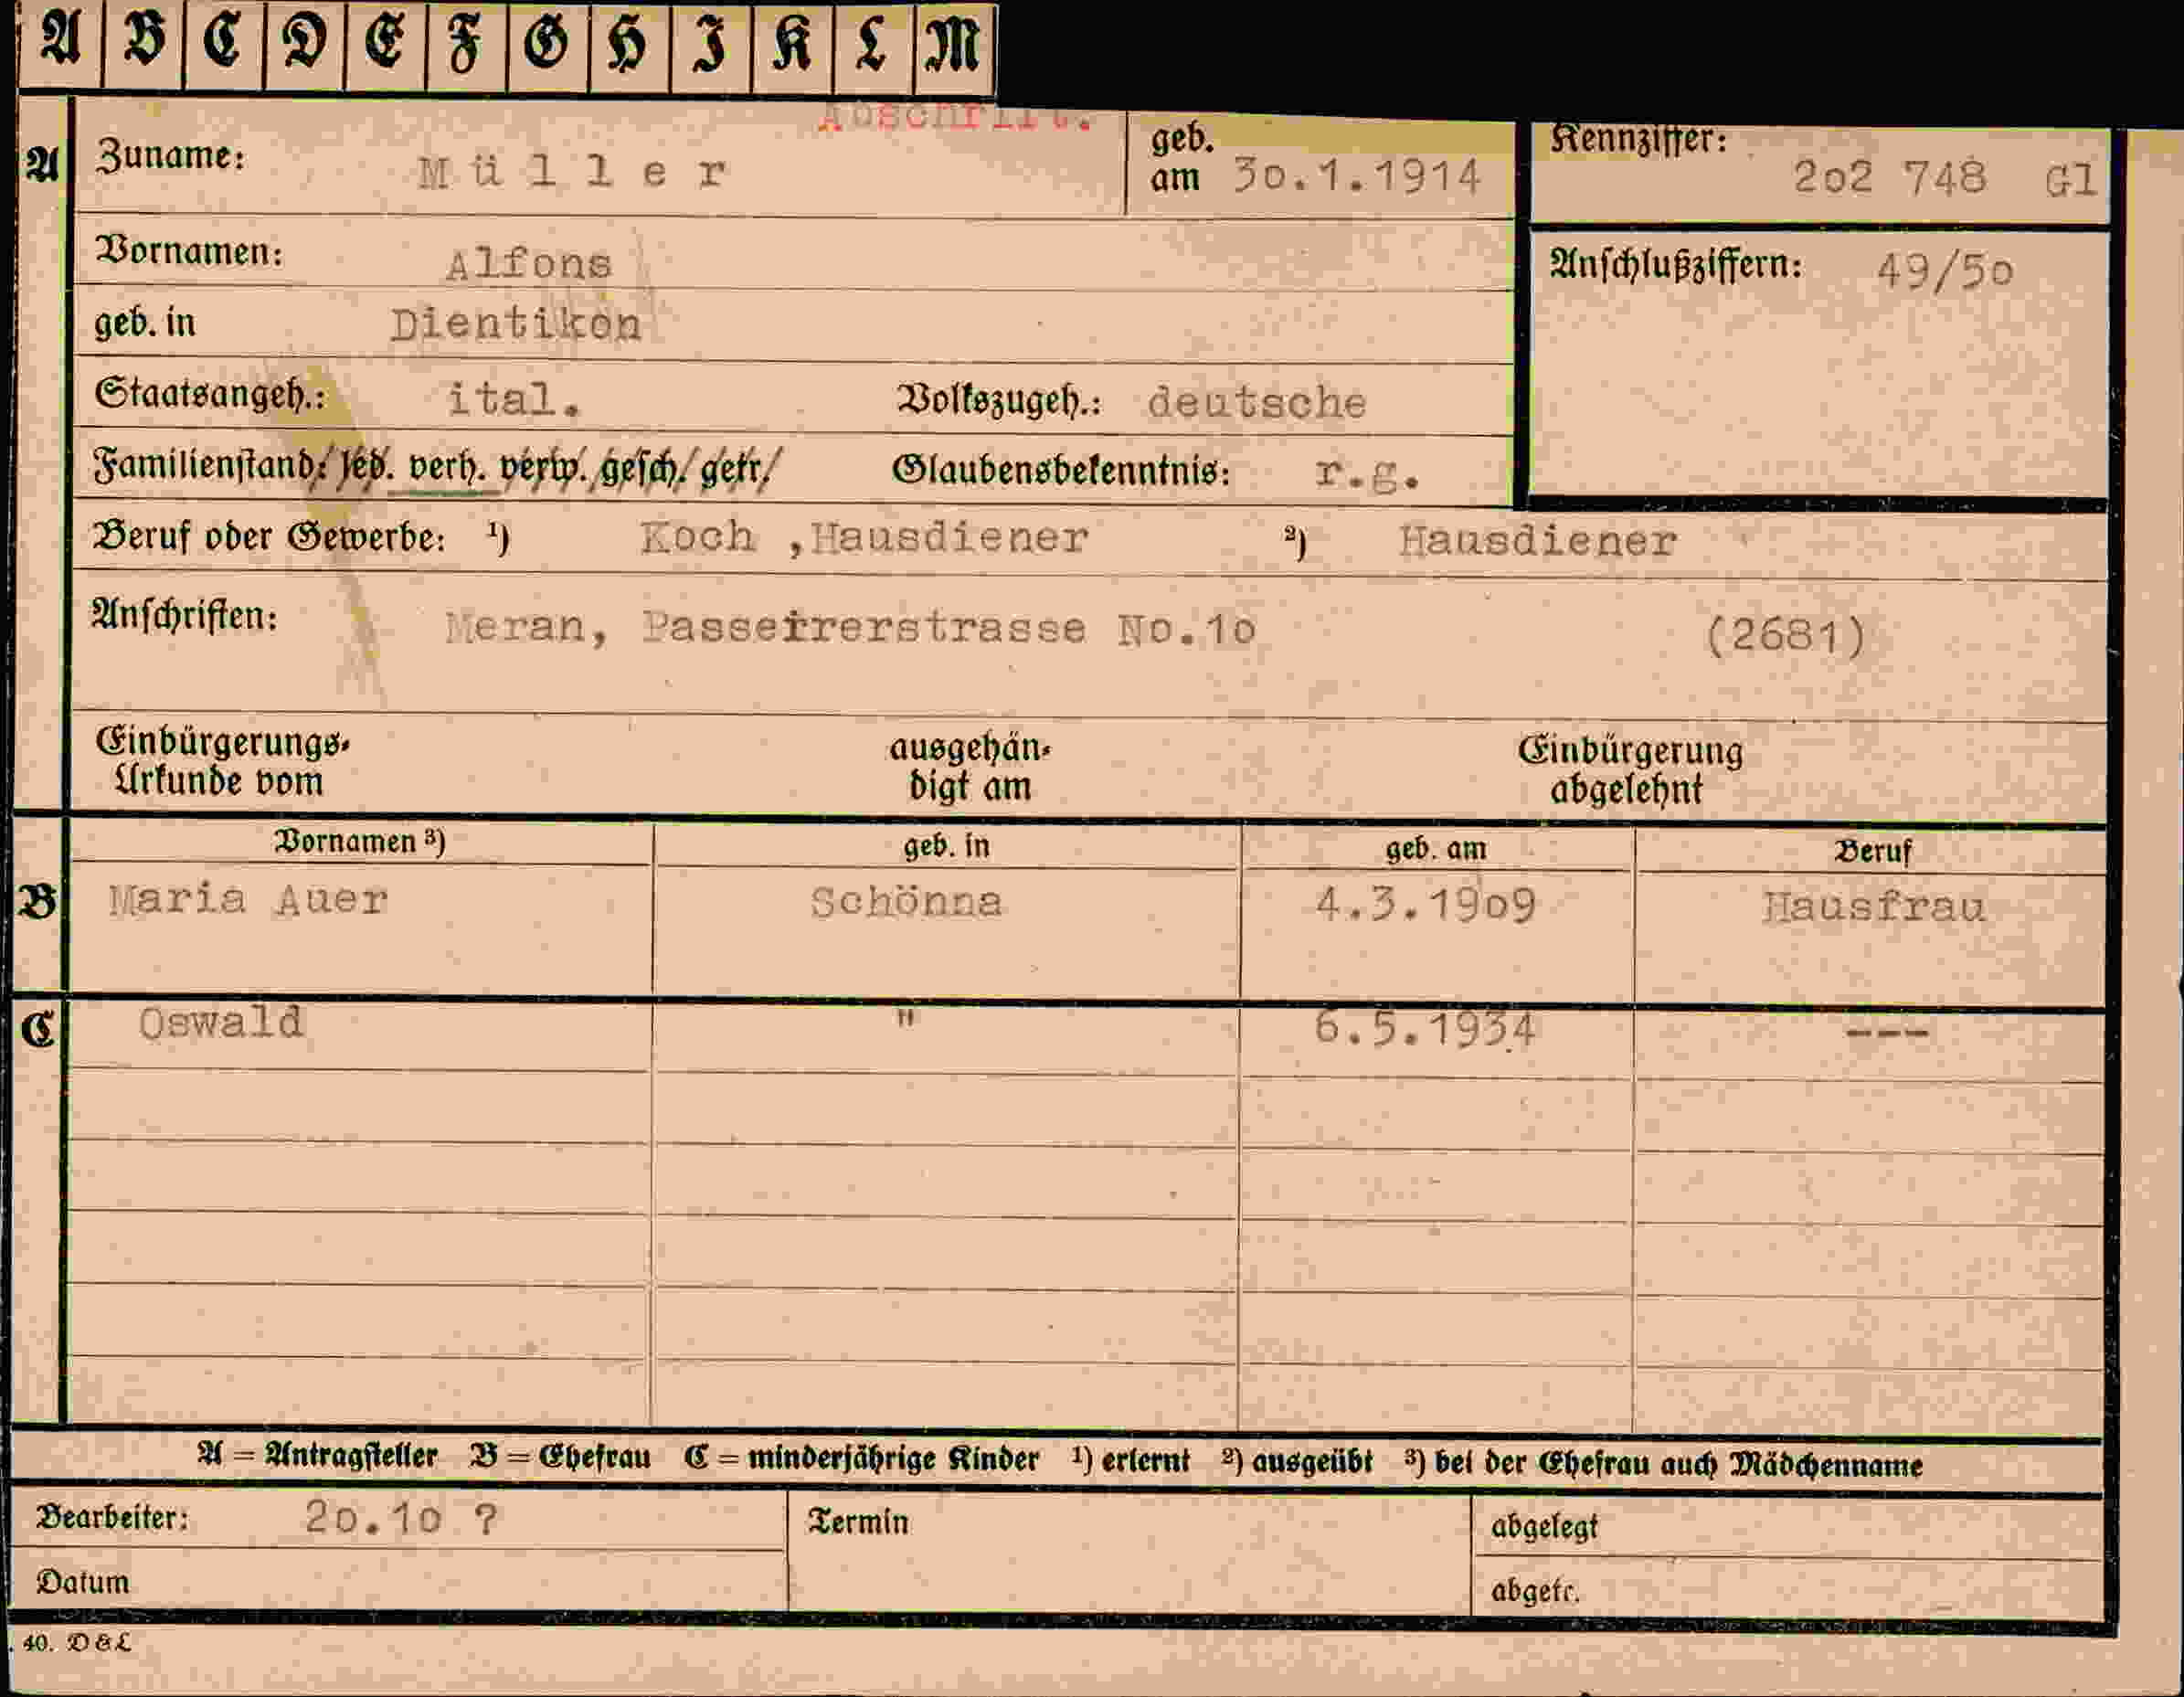 A B C D E F G H I K L M
Abschrift.
A Zuname: Müller geb. am 30.1.1914 Kennziffer: 2o2 748 Gl
Vornamen: Alfons Anschlußziffern: 49/5o
geb. in Dientikon
Staatsangeh.: ital. Volkszugeh.: deutsche
Familienstand: led. verh. verw. gesch. getr. Glaubensbekenntnis: r.g.
Beruf oder Gewerbe: ¹) Koch ,Hausdiener ²) Hausdiener
Anschriften: Meran, Passeirerstrasse No.1o (2681)
Einbürgerungs- ausgehän- Einbürgerung
Urkunde vom digt am abgelehnt
Vornamen ³) geb. in geb. am Beruf
B Maria Auer Schönna 4.3.19o9 Hausfrau
C Oswald " 6.5.1934 ---
A = Antragsteller B = Ehefrau C = minderjährige Kinder ¹) erlernt ²) ausgeübt ³) bei der Ehefrau auch Mädchenname
Bearbeiter: 2o.1o ? Termin abgelegt
Datum abgetr.
40. D & L